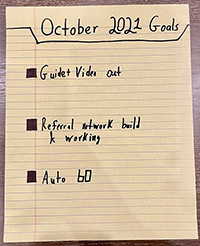 October 2021 Goals
Guidet Video out
Referral network build
k working
Auto 60